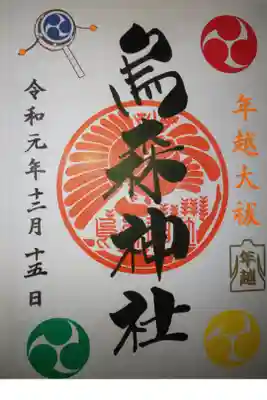 年越大祓
年越
烏森神社
令和元年十二月十五日